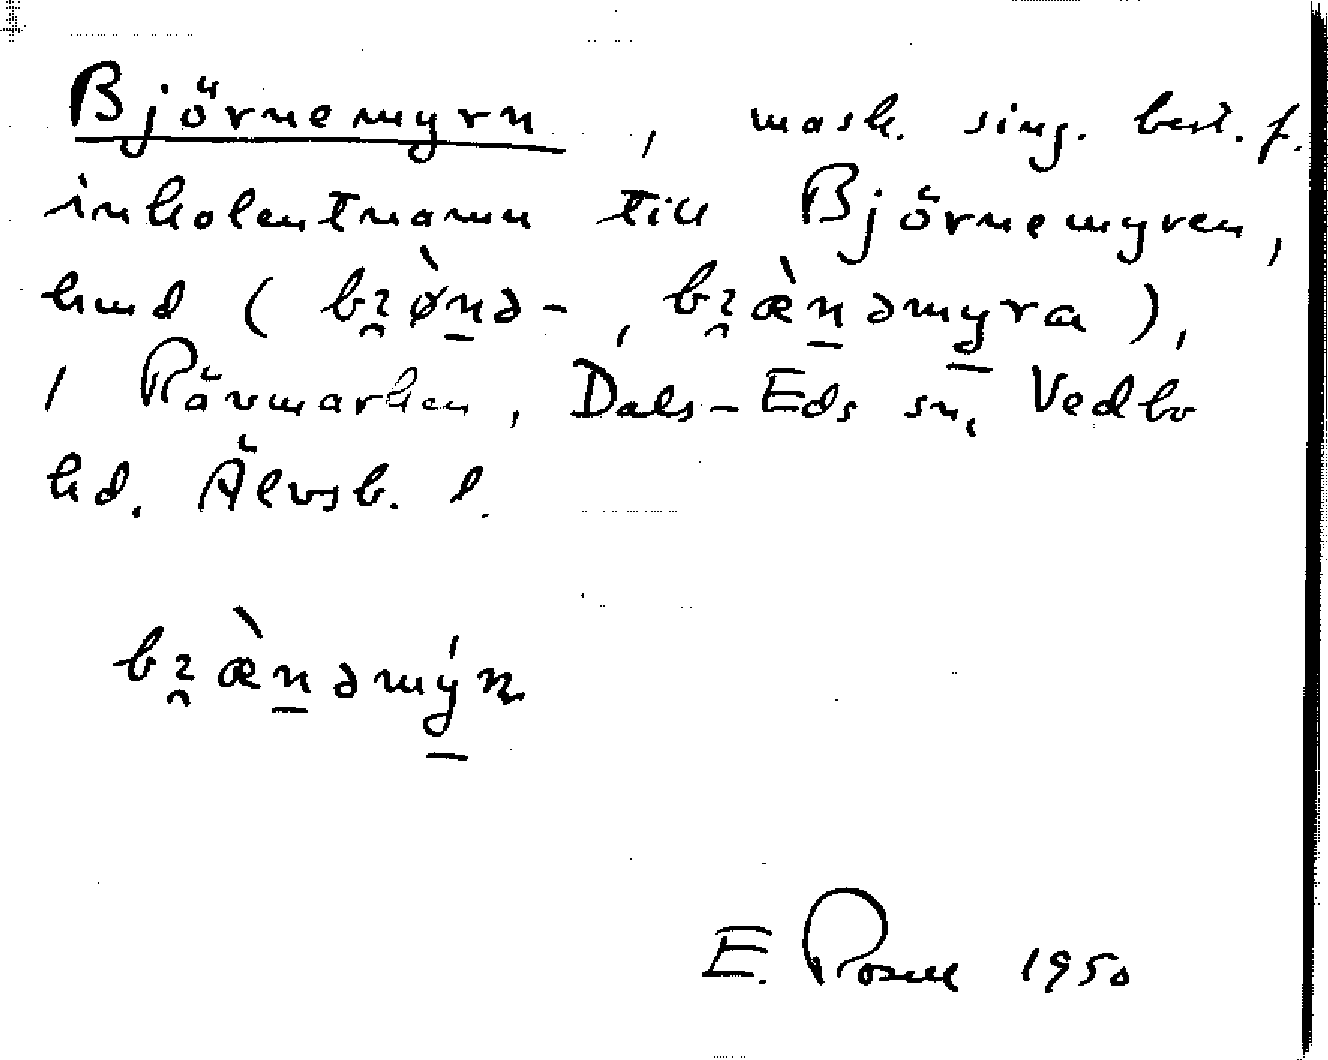 Björnemyrn, mask. sing. best. f.
inkolentnamn till Björnemyren,
hmd (bɀø̀nə-, bɀæ̀nəmyra),
i Rävmarken, Dals-Eds sn, Vedbo
hd. Älvsb. l.
bɀæ̀nəmýn
E. Rosell 1950